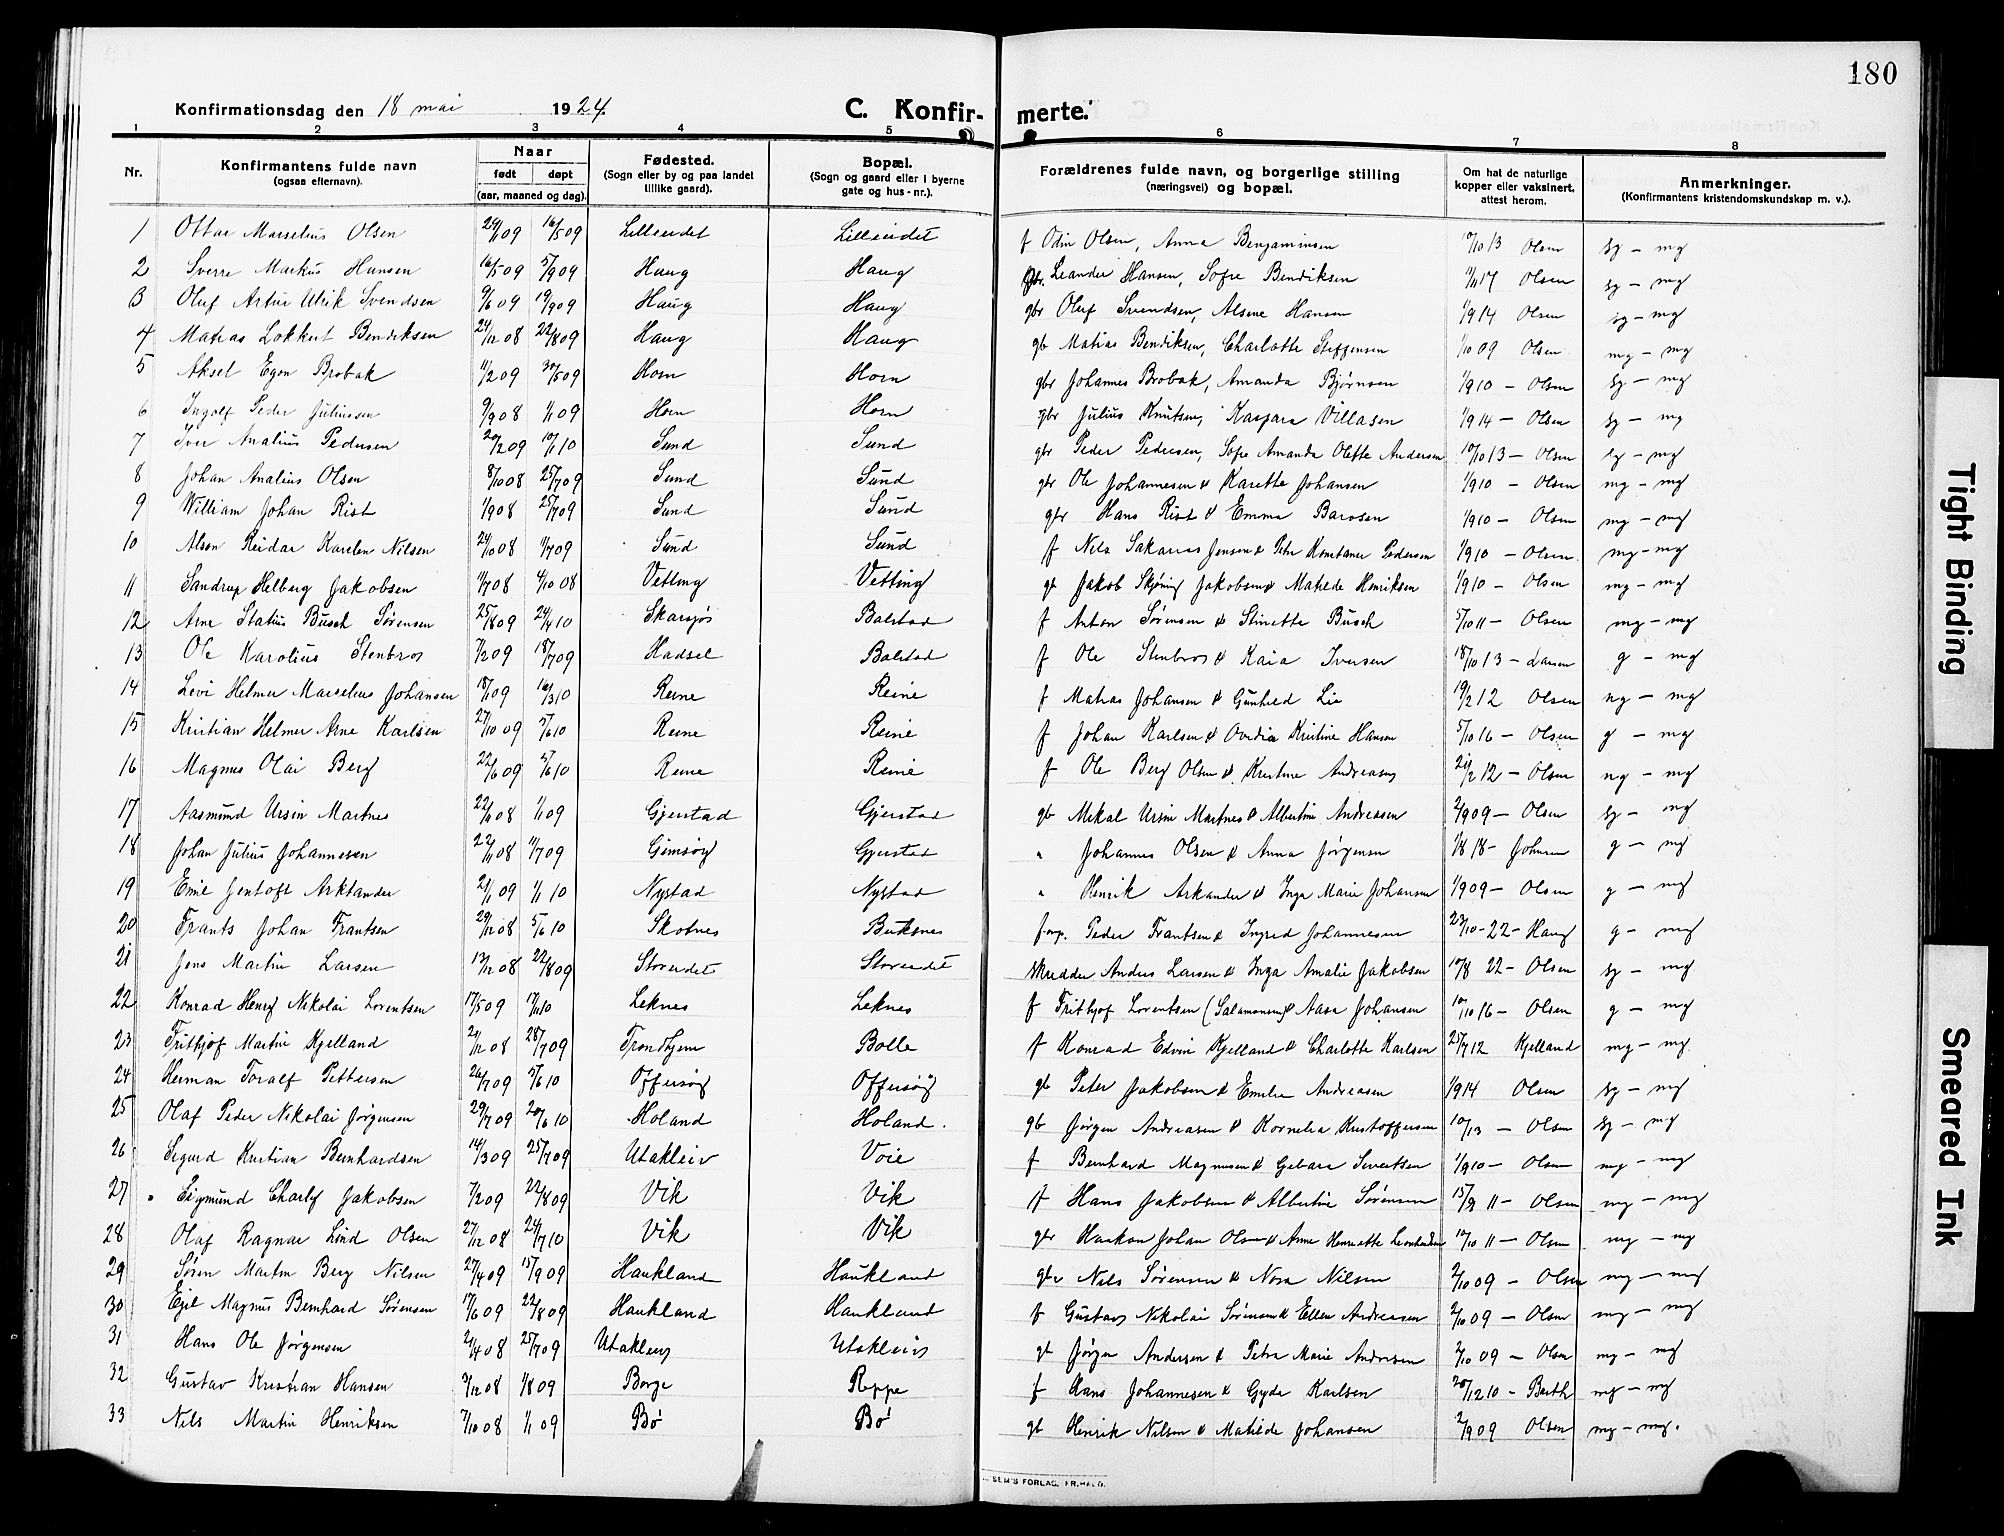 180
Konfirmationsdag den 18 mai 1924. C. Konfirmerte.
1 2 3 4 5 6 7 8
Nr. Konfirmantens fulde navn (ogsaa efternavn). Naar født døpt (aar, maaned og dag). Fødested. (Sogn eller by og paa landet tillike gaard). Bopæl. (Sogn og gaard eller i byerne gate og hus-nr.). Forældrenes fulde navn, og borgerlige stilling (næringsvei) og bopæl. Om hat de naturlige kopper eller vaksinert, attest herom. Anmerkninger. (Konfirmantens kristendomskundskap m. v.).
1 Ottar Marselius Olsen 16/5 09 Lilleeidet Lilleeidet f Odin Olsen, Anna Benjaminsen 10/10 13 Olsen sg – mg
2 Sverre Markus Hansen 16/5 09 5/9 09 Haug Haug gbr. Leander Hansen, Sofie Bendiksen 1/11 17 Olsen sg – mg
3 Oluf Artur Ulrik Svendsen 9/6 09 19/9 09 Haug Haug gbr Oluf Svendsen, Alsine Hansen 1/9 14 Olsen sg – mg
4 Matias Lokkert Bendiksen 24/12 08 22/8 09 Haug Haug gb Matias Bendiksen, Charlotte Steffensen 1/10 09 Olsen mg – mg
5 Aksel Egon Brobak 11/2 09 30/5 09 Horn Horn gbr Johannes Brobak, Amanda Bjørnsen 1/9 10 – Olsen sg – mg
6 Ingolf Peder Juliussen 9/9 08 1/1 09 Horn Horn gbr Julius Knutsen, Kaspara Villasen 1/9 14 – Olsen sg – mg
7 Iver Analius Pedersen 20/2 09 10/1 10 Sund Sund gbr Peder Pedersen, Sofie Amanda Olette Andersen 10/10 13 – Olsen sg – mg
8 Johan Analius Olsen 8/10 08 25/7 09 Sund Sund gbr Ole Johannesen & Karette Johansen 1/9 10 – Olsen mg – mg
9 William Johan Rist 1/9 08 25/7 09 Sund Sund gbr Hans Rist & Emma Barosen 1/9 10 – Olsen mg – mg
10 Alson Reidar Karelen Nilsen 24/10 08 1/7 09 Sund Sund f Nils Sakarias Jensen & Petra Konstanse Pedersen 1/9 10 – Olsen mg – mg
11 Sandrup Helberg Jakobsen 11/7 08 4/10 08 Vetting Vetting gb Jakob Skjøning Jakobsen & Matilde Henriksen 1/9 10 – Olsen mg – mg
12 Arne Statius Busch Sørensen 25/8 09 24/4 10 Skarsjøs Balstad f Anton Sørensen & Stinette Busch 5/10 11 – Olsen mg – mg
13 Ole Karolius Stenbros 7/2 09 18/7 09 Hadsel Balstad f Ole Stenbros & Kaia Iversen 18/10 13 – Larsen g – mg
14 Levi Helmer Marselius Johansen 18/1 09 16/3 10 Reine Reine f Matias Johansen & Gunhild Lie 19/2 12 Olsen ng – mg
15 Kristian Helmer Arne Karlsen 27/10 09 5/6 10 Reine Reine f Johan Karlsen & Ovidia Kristine Hansen 5/10 16 – Olsen g – mg
16 Magnus Olai Berg 22/6 09 5/6 10 Reine Reine f Ole Berg Olsen & Kristine Andreasen 21/2 12 – Olsen ng – mg
17 Aasmund Ursin Martnes 22/1 08 1/1 09 Gjerstad Gjerstad gb Mikal Ursin Martnes & Albertine Andreassen 2/9 09 – Olsen sg – mg
18 Johan Julius Johannesen 22/11 08 11/7 09 Gimsøy Gjerstad " Johannes Olsen & Anna Jørgensen 1/8 18 – Johnsen g – mg
19 Emil Jentoft Arktander 21/1 09 1/1 10 Nystad Nystad " Henrik Arkander & Inga Marie Johansen 1/9 09 – Olsen g – mg
20 Frants Johan Frantsen 29/12 08 5/6 10 Skotnes Buksnes Peder Frantsen & Ingrid Johannesen 23/10 – 22 – Haug g – mg
21 Jens Martin Larsen 13/12 08 22/8 09 Storeidet Storeidet skredder Anders Larsen & Inga Amalie Jakobsen 10/8 22 – Olsen sg – mg
22 Konrad Henry Nikolai Lorentsen 17/5 09 Leknes Leknes f Frithjof Lorentsen (Salamonsen) & Aasa Johansen 10/10 16 – Olsen g – mg
23 Frithjof Martin Kjelland 21/12 08 28/7 09 Trondhjem Bolle f Konrad Edvin Kjelland & Charlotte Karlsen 25/7 12 Kjelland mg – mg.
24 Herman Toralf Pettersen 26/7 09 5/6 10 Offersøy Offersøy gb Peter Jakobsen & Emilie Andreasen 1/9 14 Olsen sg – mg
25 Olaf Peder Nikolai Jørgensen 29/7 09 20/6 10 Holand Holand. gb Jørgen Andreasen & Kornelia Kristoffersen 10/13 – Olsen sg – mg
26 Sigurd Kristian Bernhardsen 14/3 09 25/7 09 Utakleiv Voie f Bernhard Magnusen & Gebara Sivertsen 1/9 10 – Olsen mg – mg
27 " Sigmund Charly Jakobsen 7/2 09 22/8 09 Vik Vik f Hans Jakobsen & Albertine Sørensen 15/9 11 – Olsen mg – mg
28 Olaf Ragnar Lind Olsen 27/12 08 24/7 10 Vik Vik gbr Haakon Johan Olsen & Anne Henriette 10/10 11 – Olsen mg – mg
29 Søren Martin Berg Nilsen 27/4 09 15/9 09 Haukland Haukland gbr Nils Sørensen & Nora Nilsen 2/10 09 – Olsen mg – mg
30 Egil Magnus Bernhard Sørensen 17/6 09 22/8 09 Haukland Haukland f Gustav Nikolai Sørensen & Ellen Andreasen 2/10 09 – Olsen mg – mg
31 Hans Ole Jørgensen 21/4 08 25/7 09 Utakleiv Utakleiv gb Jørgen Andersen & Petra Marie Andresen 2/10 09 – Olsen mg – mg
32 Gustav Kristian Hansen 3/12 08 1/8 09 Borge Reppe f Hans Johannesen & Gyda Karlsen 20/12 10 – Barth mg – mg
33 Nils Martin Henriksen 7/10 08 1/1 09 Bø Bø gb Henrik Nilsen & Matilde Johansen 2/9 09 Olsen mg – mg.
SEM'S FORLAG, FR.HALD.
Tight Binding
Smeared Ink